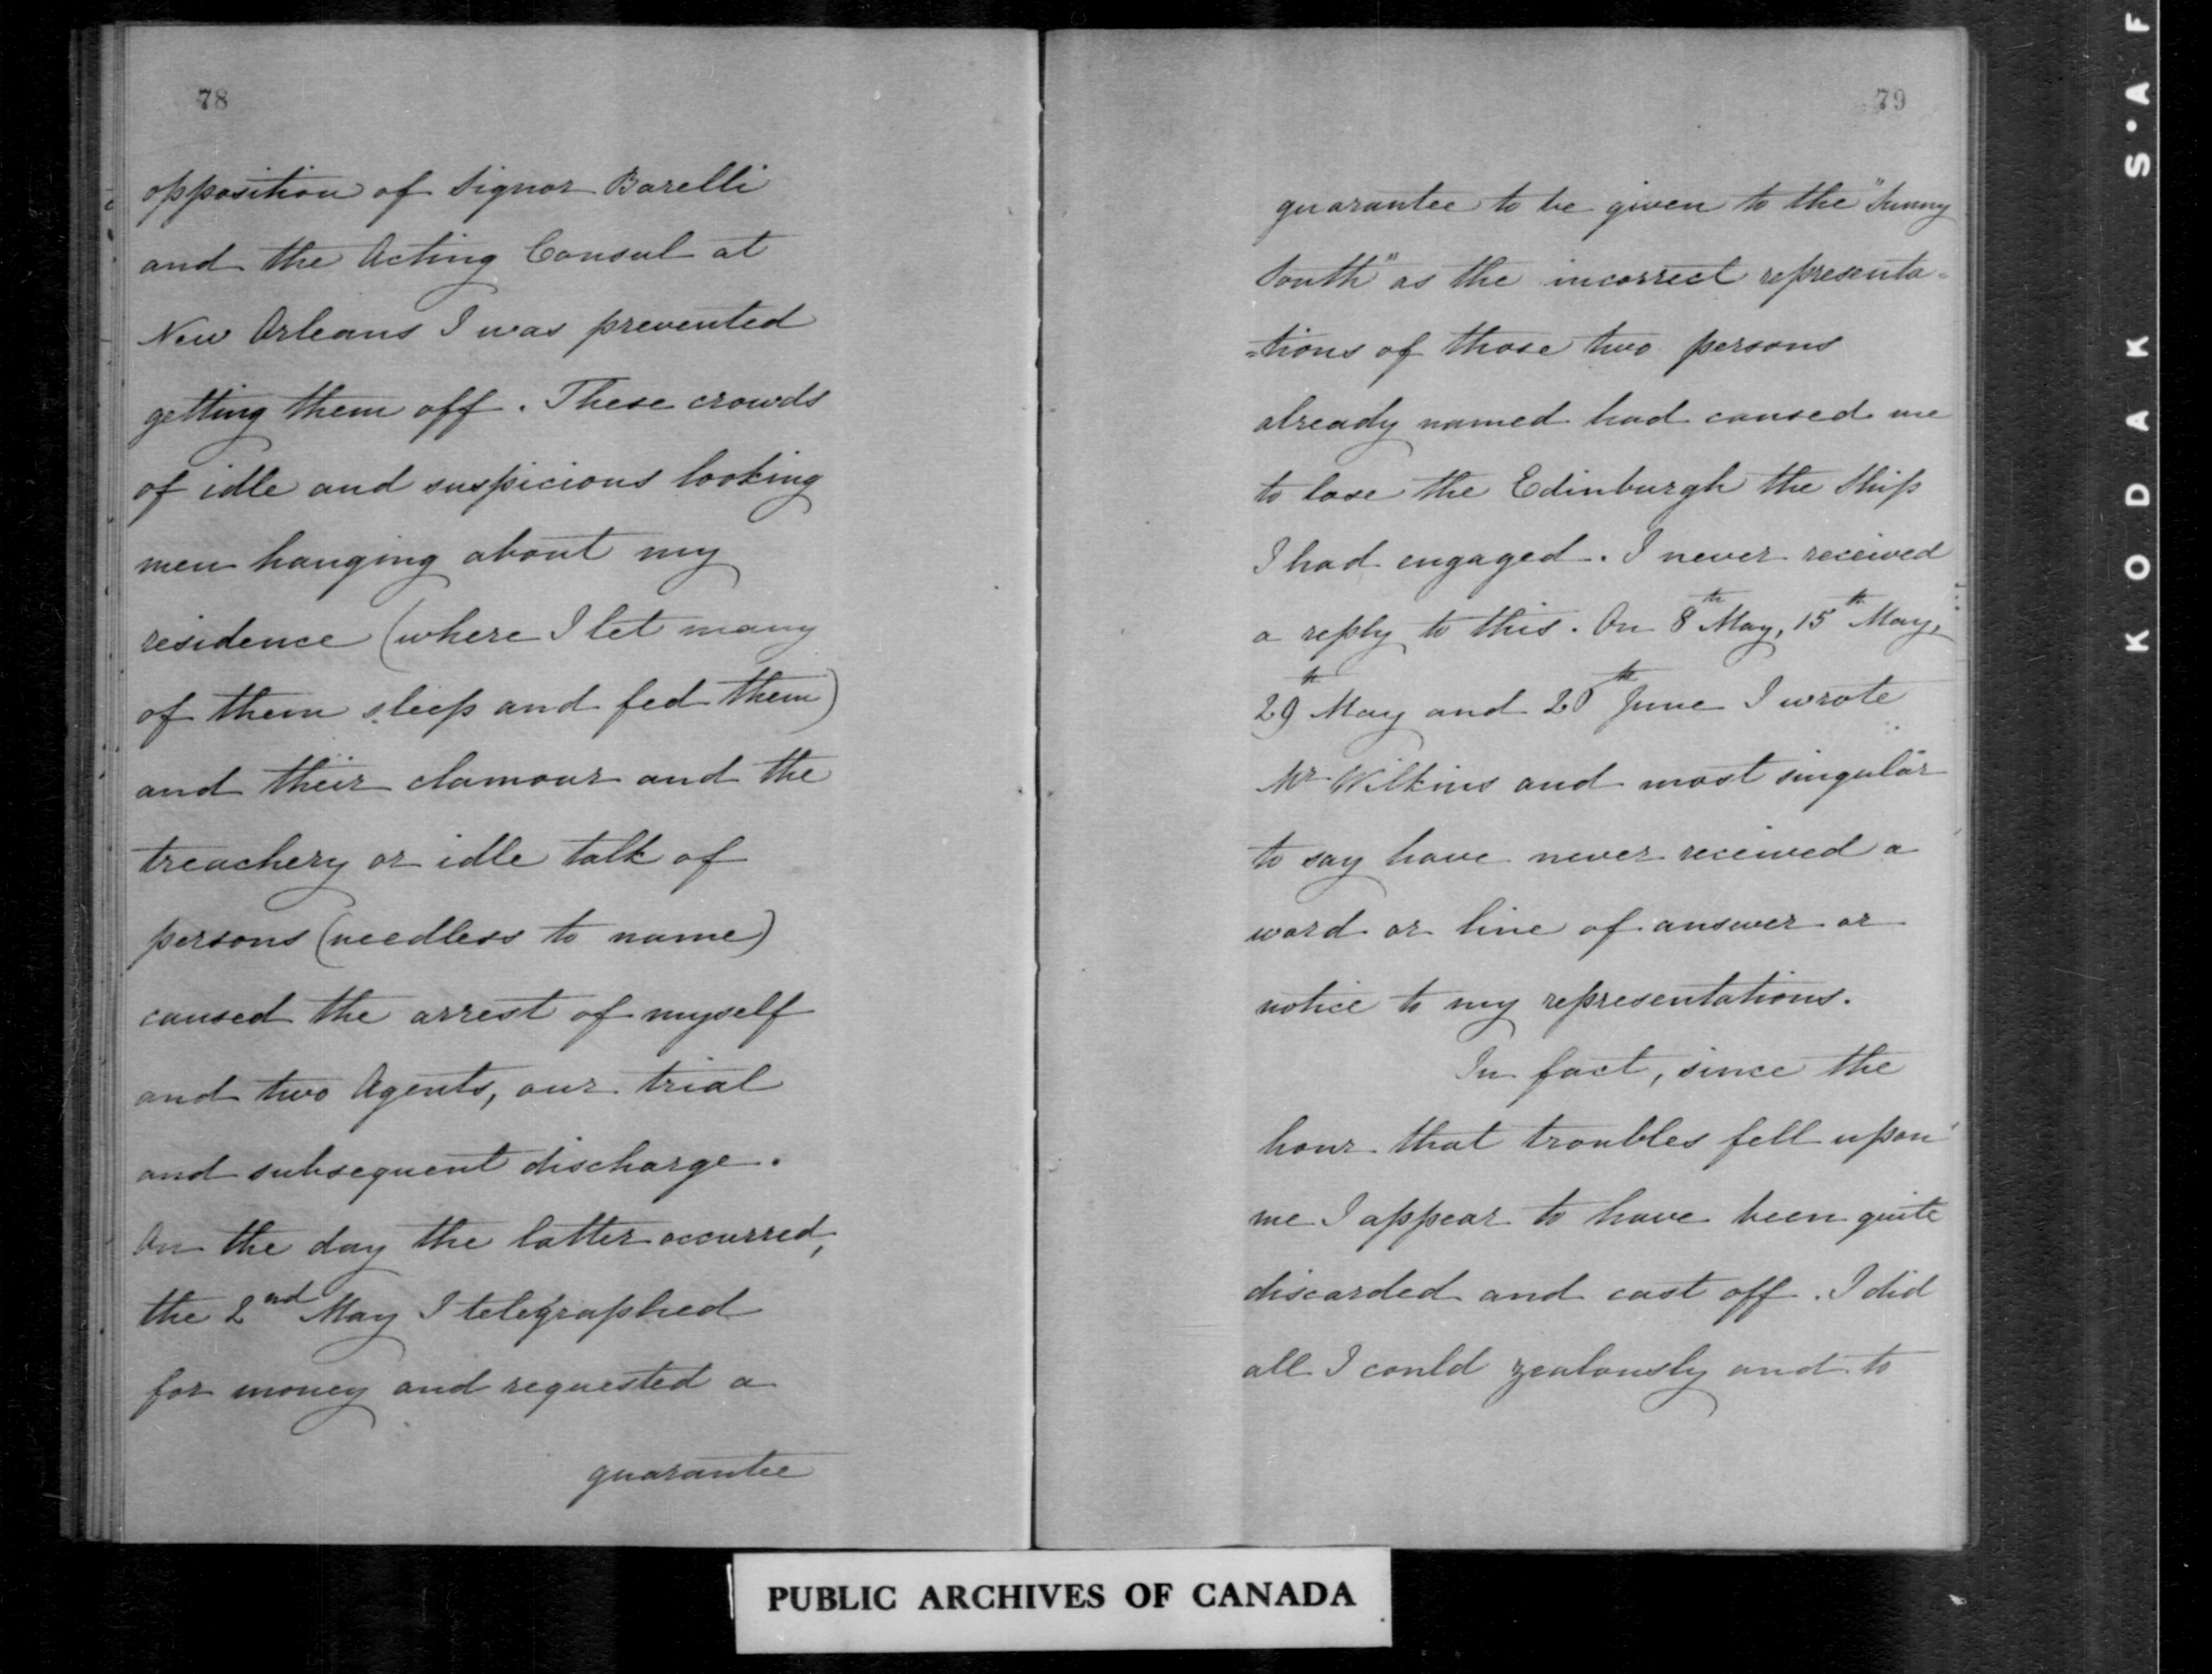 78
opposition of Signor Barelli
and the Acting Consul at
New Orleans I was prevented
getting them off. These crowds
of idle and suspicious looking
men hanging about my
residence (where I let many
of them sleep and fed them)
and their clamour and the
treachery or idle talk of
persons (needless to name)
caused the arrest of myself
and two Agents, our trial
and subsequent discharge.
On the day the latter occurred,
the 2nd May I telegraphed
for money and requested a
guarantee
79
guarantee to be given to the "Sunny
South" as the incorrect representa=
=tions of those two persons
already named had caused me
to lose the Edinburgh the Ship
I had engaged. I never received
a reply to this. On 8th May, 15th May,
29th May and 20th June I wrote
Mr Wilkins and most singular
to say have never received a
word or line of answer or
notice to my representations.
In fact, since the
hour that troubles fell upon
me I appear to have been quite
discarded and cast off. I did
all I could zealously and to
PUBLIC ARCHIVES OF CANADA
KODAK S·AF